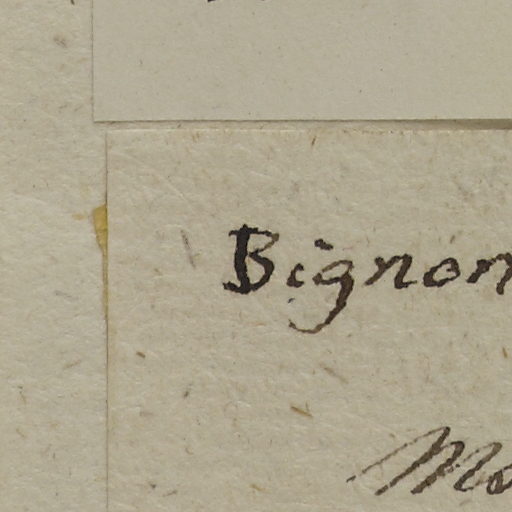 Bignon
Mo